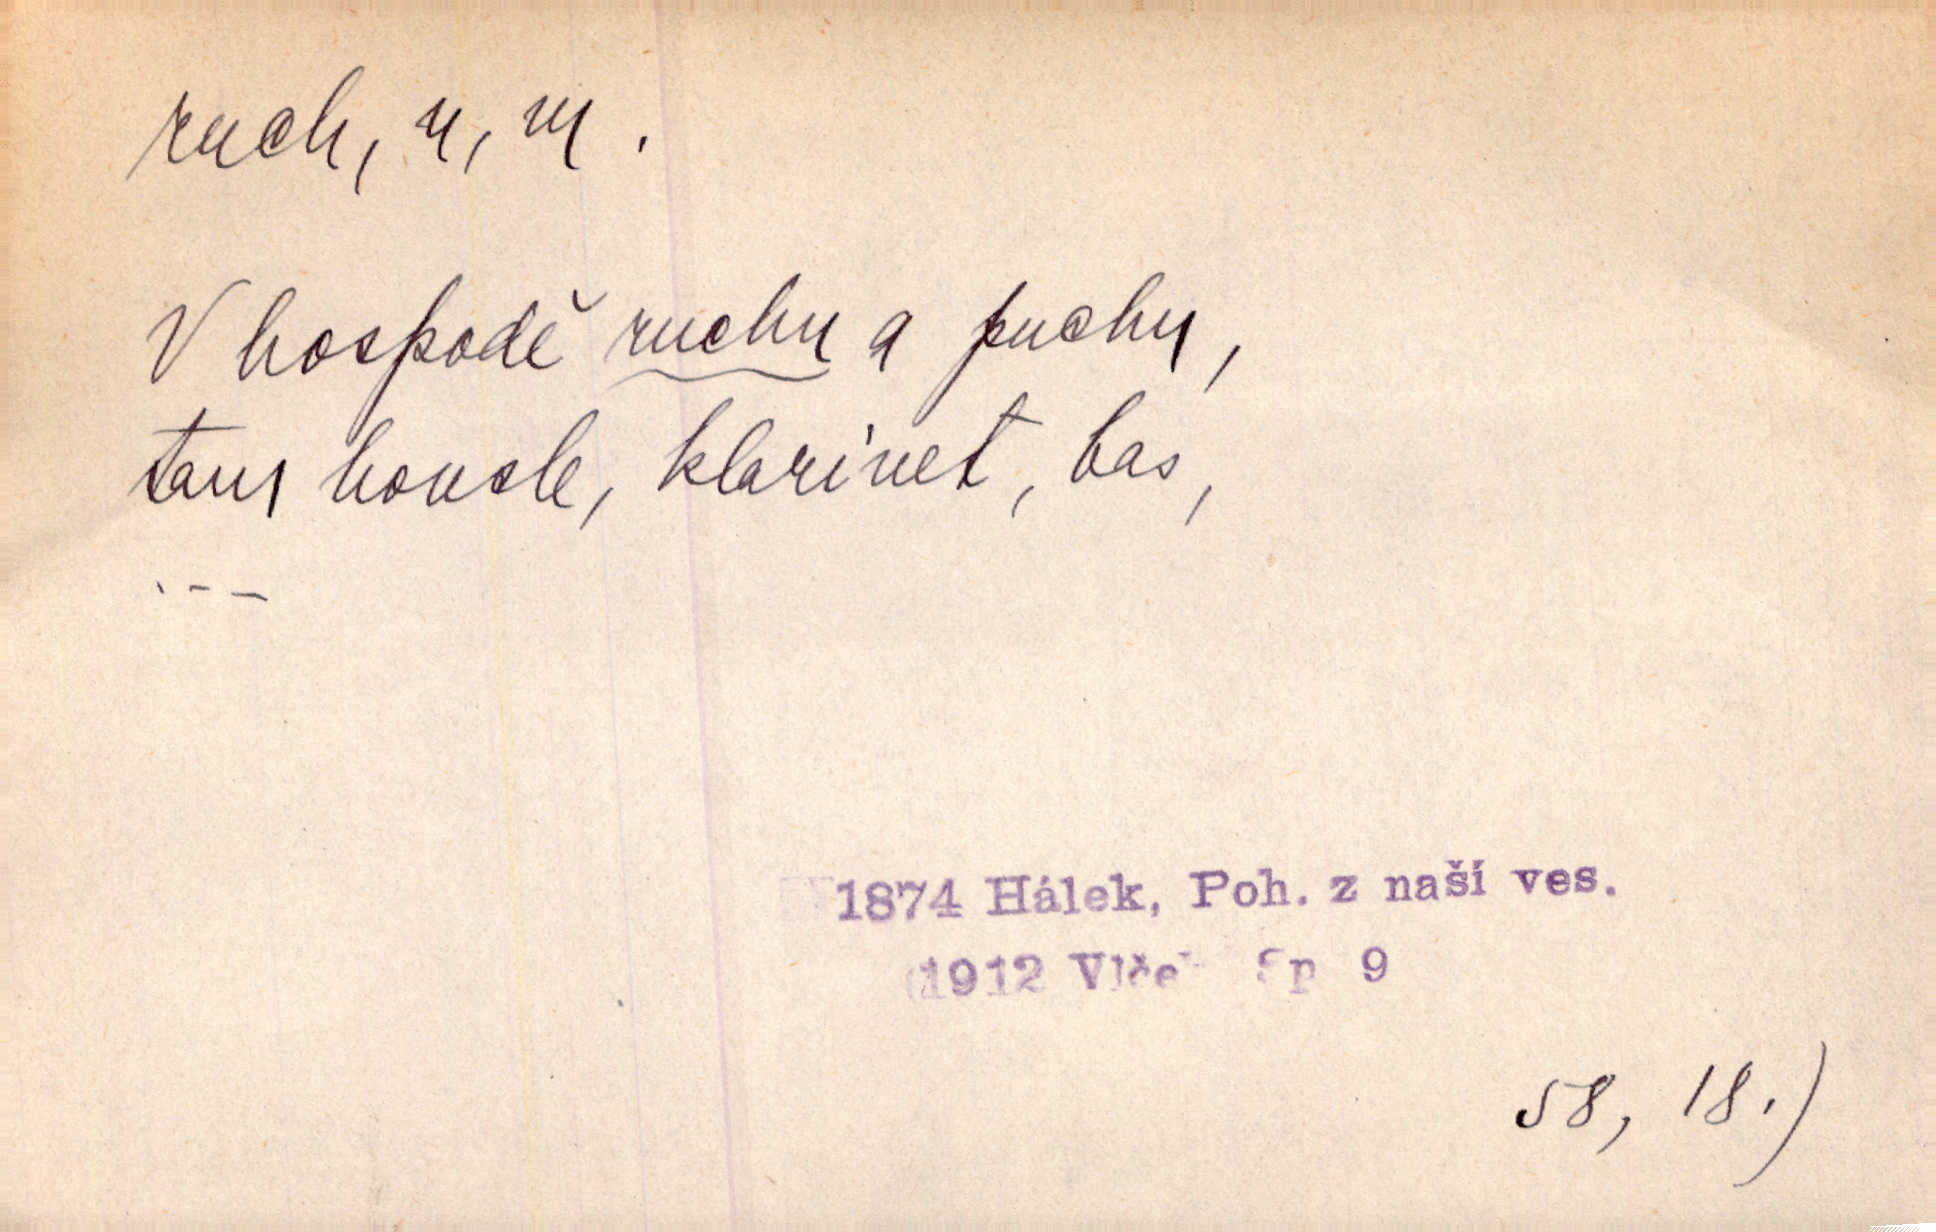 ruch, u, m.
V hospodě ruchu a puchu,
tam housle, klarinet, bas,
---
1874 Hálek, Poh. z naší ves.
(1912 Sp 9
58, 18.)